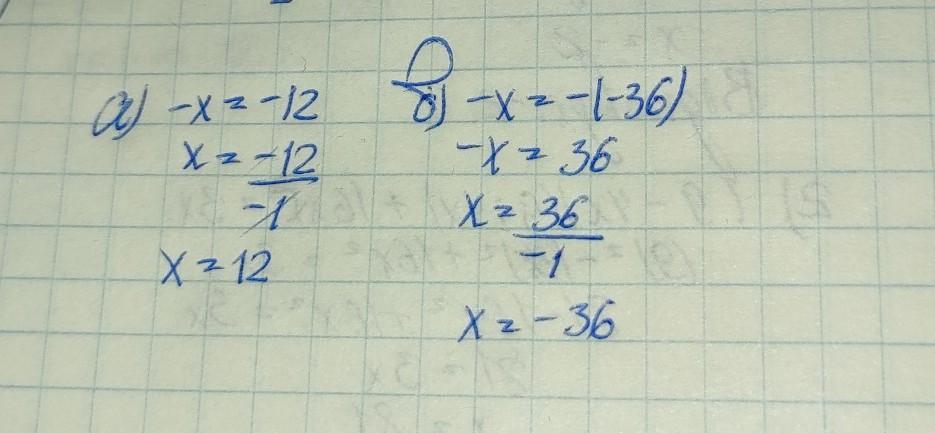 а) -x = -12
x = -12
-1
x = 12
б) -x = -(-36)
-x = 36
x = 36
-1
x = -36